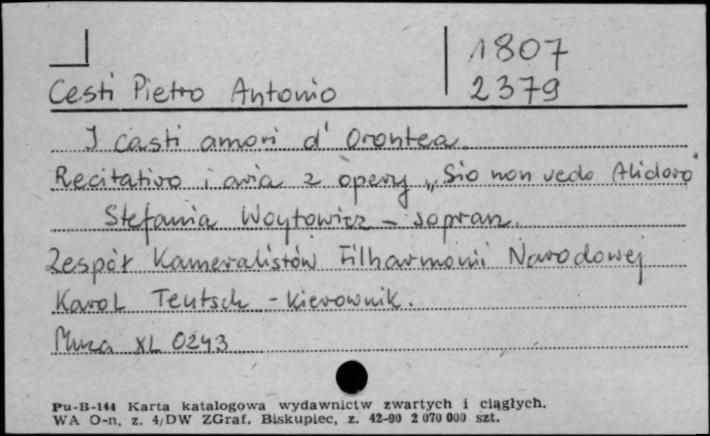 1807
2379
Cesti Pietro Antonio
I casti amori d' Orontea.
Recitativo i aria z opery „Sio non vedo Alidoro"
Stefania Woytowicz - sopran.
Zespół Kameralistów Filharmonii Narodowej
Karol Teutsch - kierownik.
Muza XL 0243
Pu-B-144 Karta katalogowa wydawnictw zwartych i ciągłych.
WA O-n, z. 4/DW ZGraf. Biskupiec, z. 42-90 2 070 000 szt.